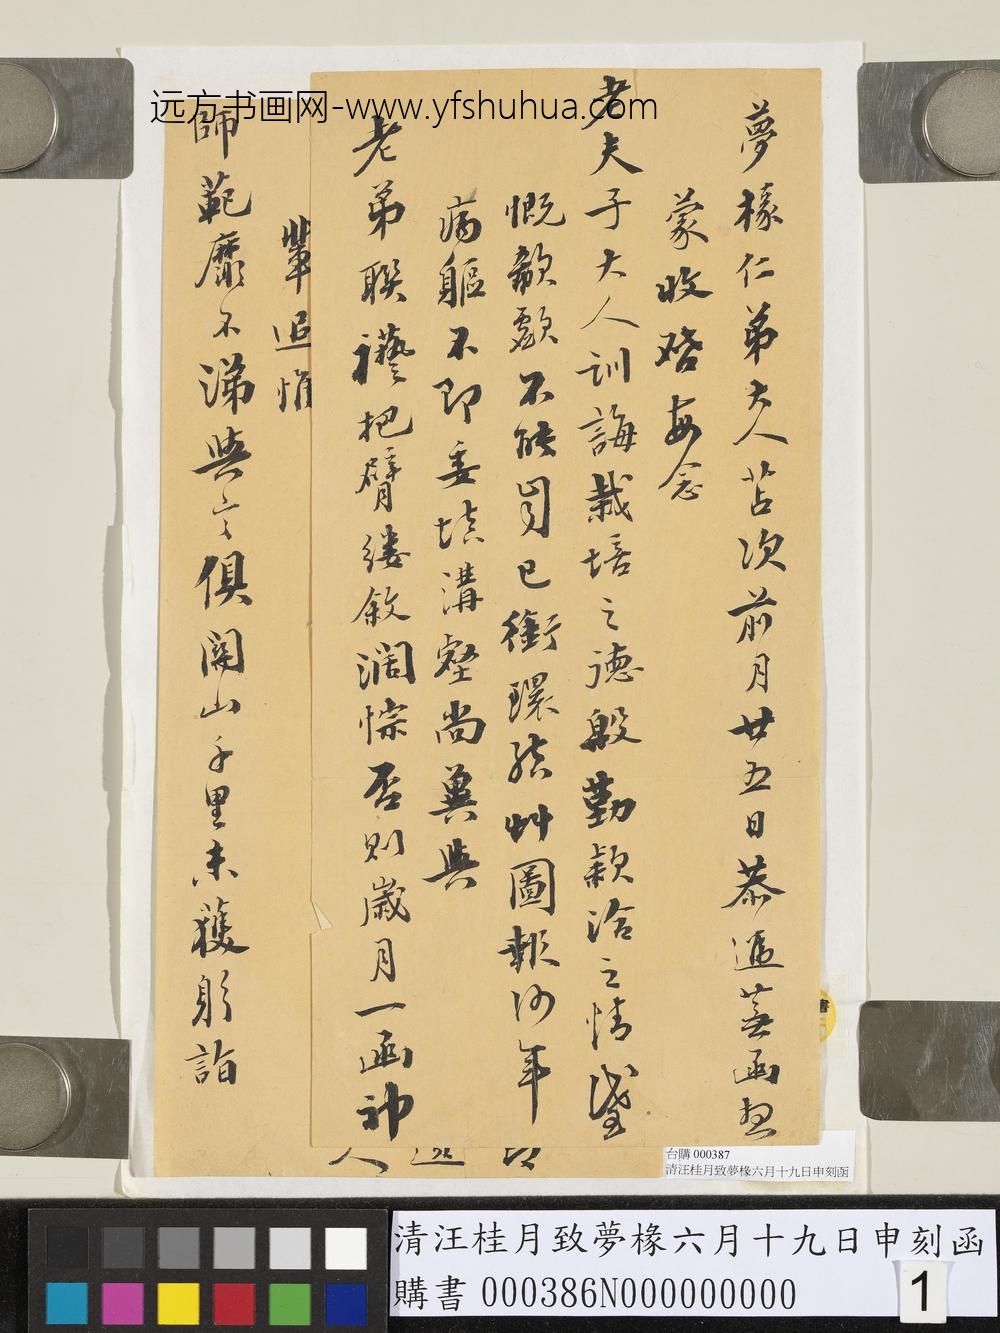 远方书画网-www.yfshuhua.com
夢椽仁弟大人苫次前月廿五日恭遞蕪函想
蒙收啓每念
老夫子大人訓誨栽培之德殷勤款洽之情感
慨欷歔不能自已銜環結艸圖報何年
病軀不即委填溝壑尚冀與
老弟聯襼把臂縷敘濶悰否則歲月一函神
輩追惟
師範靡不涕與言俱關山千里未獲躬詣
書
台購 000387
清汪桂月致夢椽六月十九日申刻函
清汪桂月致夢椽六月十九日申刻函
購書 000386N000000000
1